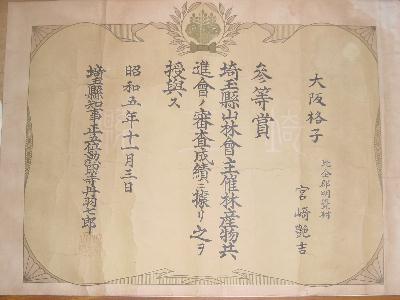 大阪格子
比企郡明覺村
宮崎艶吉
參等賞
埼玉縣山林會主催林産物共
進會ノ審査成績ニ據リ之ヲ
授與ス
昭和五年十一月三日
埼玉縣知事正五位勲四等丹羽七郎